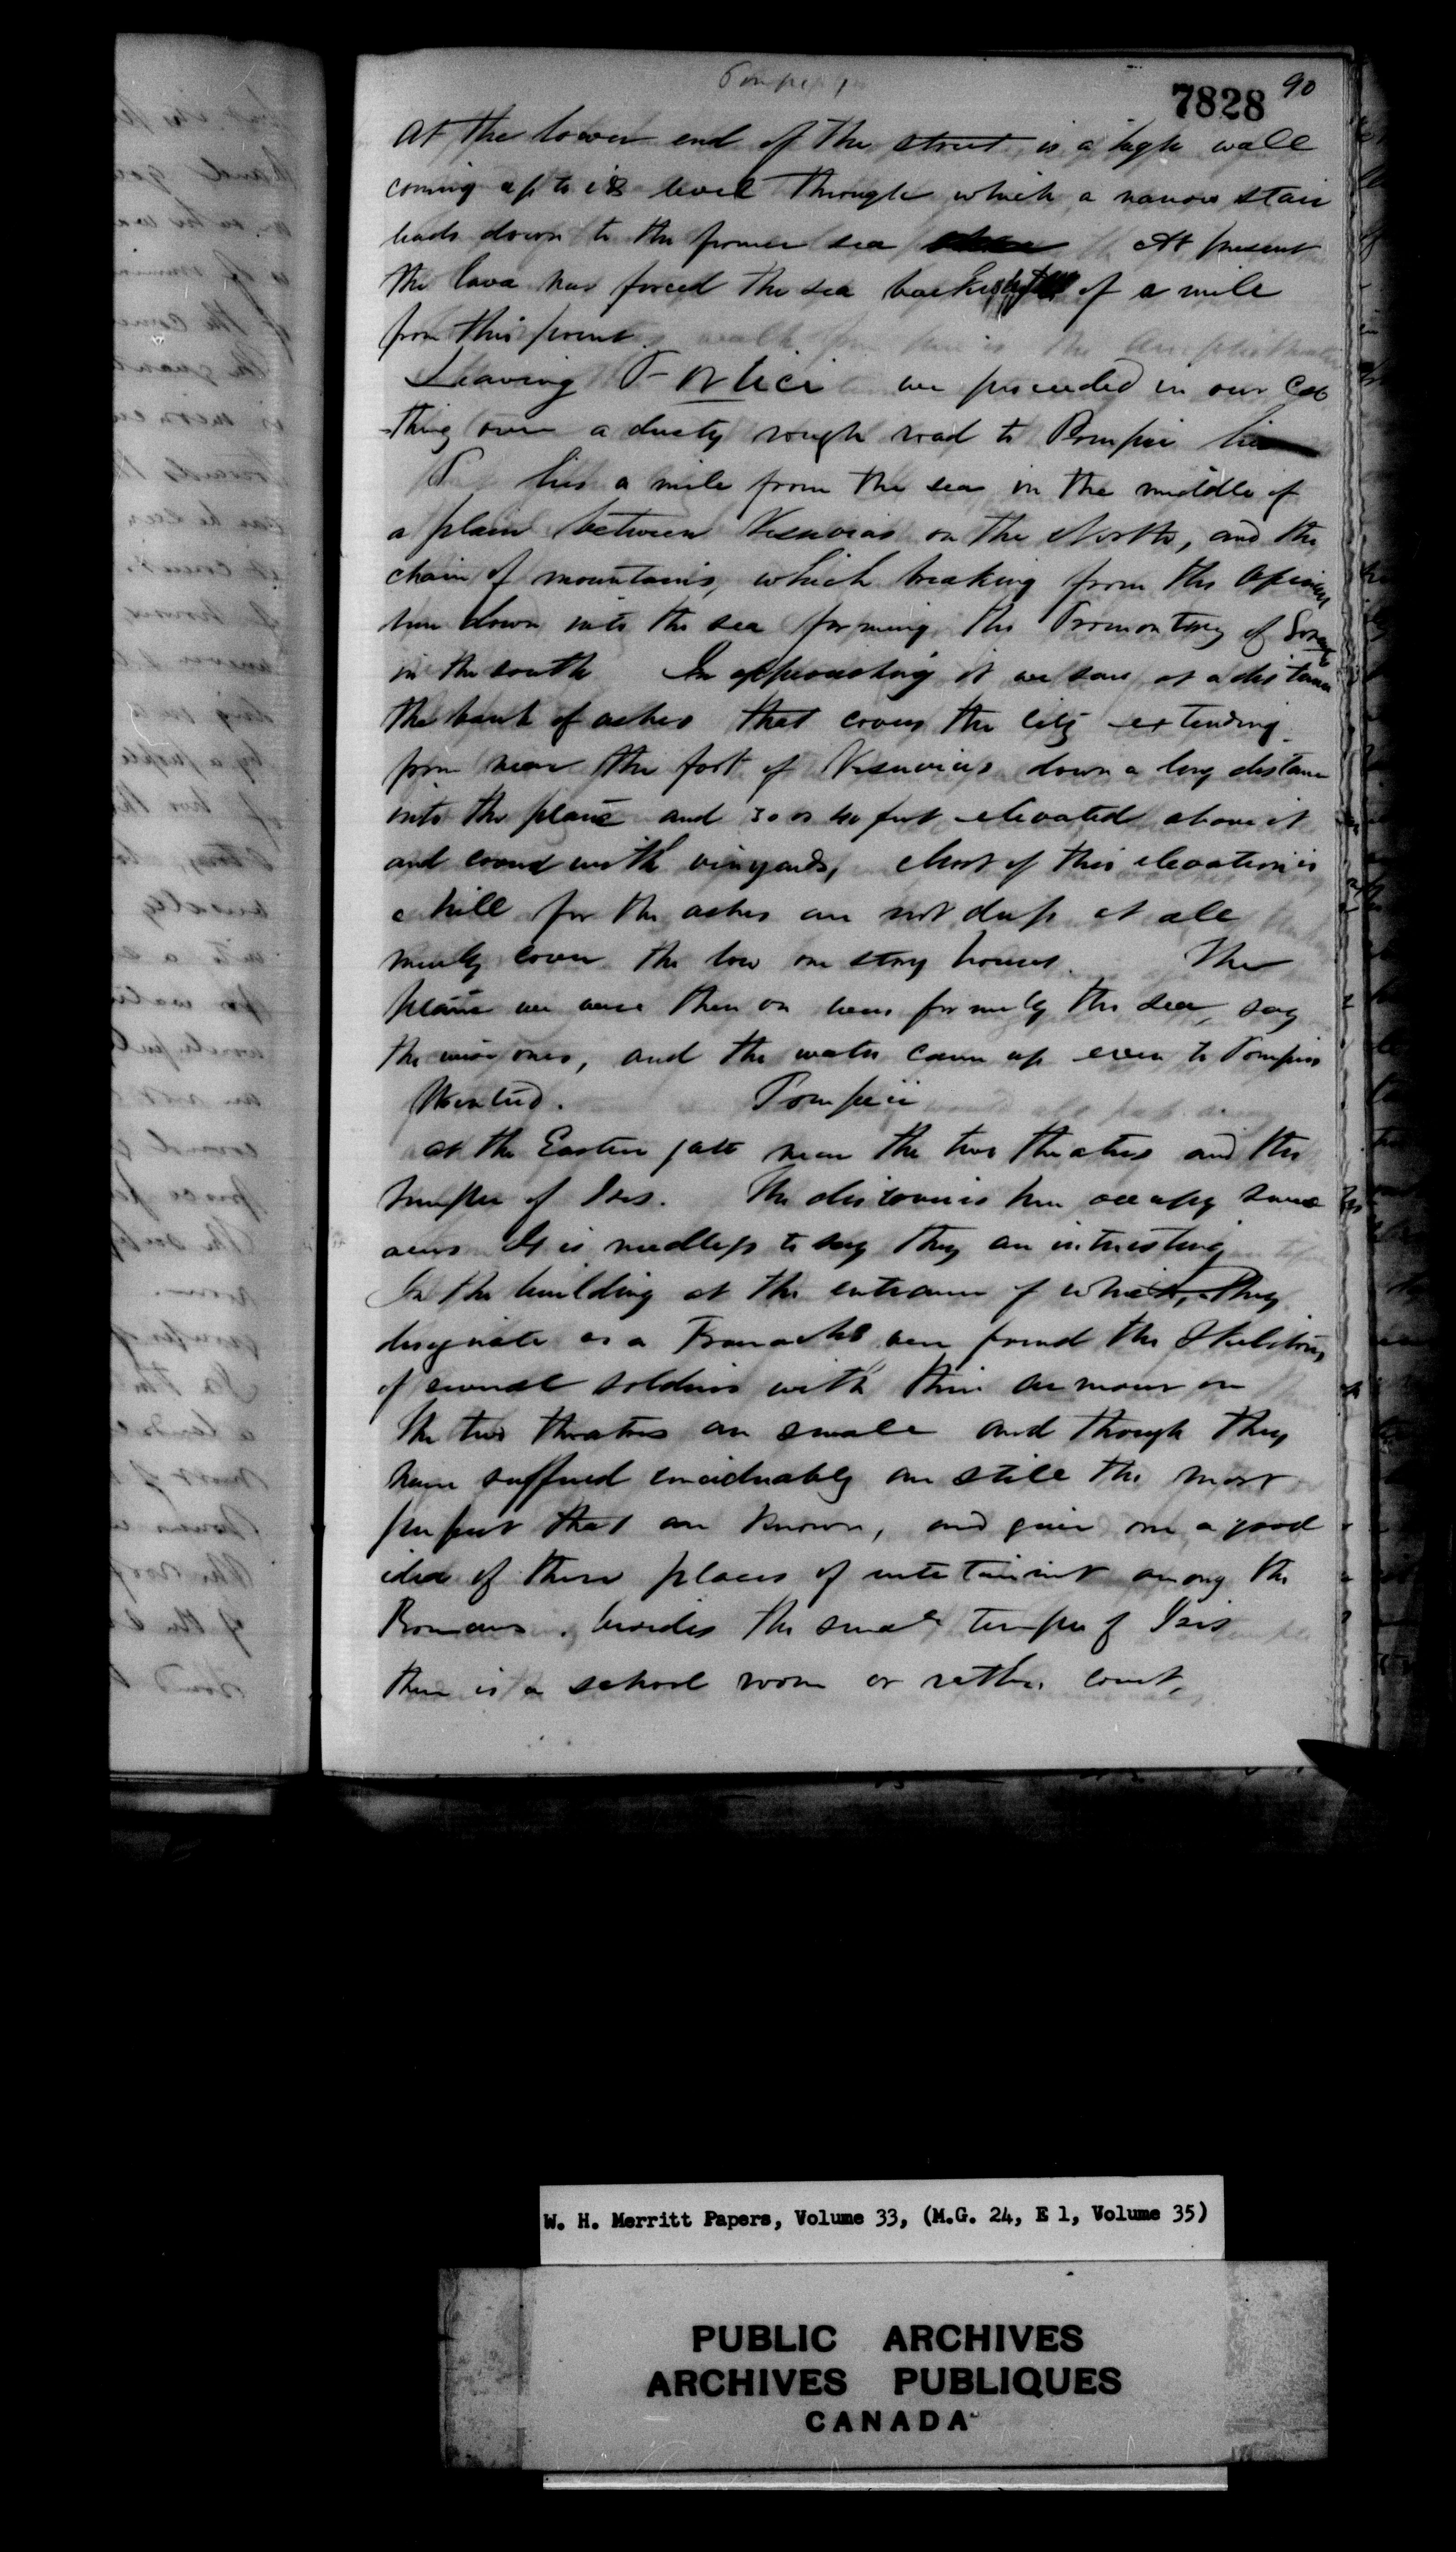 Pompeii
7828 90
At the lower end of the street is a high wall
coming up to its level through which a narrow stair
leads down to the former sea At present
the lava has forced the sea back of a mile
from this point.
Leaving Portici we proceeded in our
thing over a dusty rough road to Pompeii
P lies a mile from the sea in the middle of
a plain between Vesuvius on the North, and the
chain of mountains, which breaking from the Apennines
run down into the sea forming the Promontory of Sorrento
in the south In approaching it we saw at a distance
the bank of ashes that covers the city extending
from near the foot of Vesuvius down a long distance
into the plain and 30 or 40 feet elevated above it
and covered with vinyards, Most of this elevation is
a hill for the ashes are not deep at all
merely cover the low one story houses. The
plain we were then on was formerly the sea, say
the wise ones, and the water came up even to Pompeii
Pompeii
at the Eastern gate near the two theatres and the
temple of Isis. The discoveries here occupy some
acres It is needless to say they are interesting
In the building at the entrance of which, they
designate as a were found the Skeletons
of several soldiers with their armour on
The two theatres are small and though they
have suffered considerably are still the most
perfect that are known, and give one a good
idea of these places of entertainment among the
Romans. besides the small temple of Isis
there is a school room or rather court,
W. H. Merritt Papers, Volume 33, (M.G. 24, E 1, Volume 35)
PUBLIC ARCHIVES
ARCHIVES PUBLIQUES
CANADA